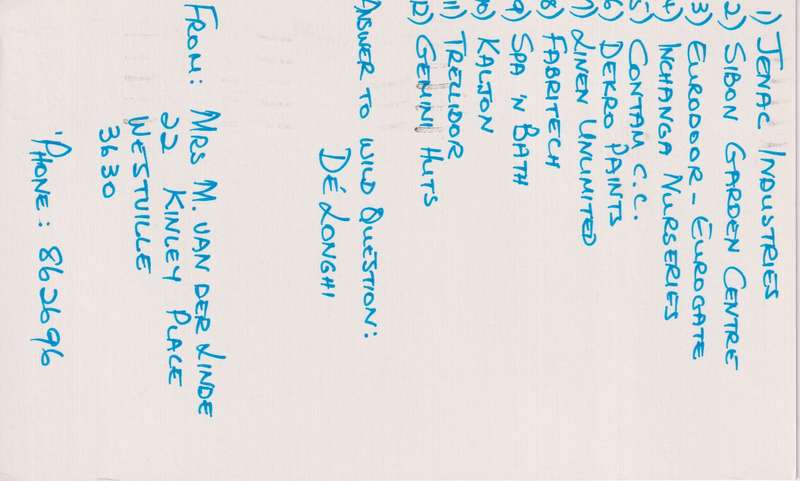 1) JENAC INDUSTRIES
2) SIBON GARDEN CENTRE
3) EURODOOR - EUROGATE
4) INCHANGA NURSERIES
5) CONTAM C.C.
6) DEKRO PAINTS
7) LINEN UNLIMITED
8) FABRITECH
9) SPA 'N BATH
10) KALTON
11) TRELLIDOR
12) GEMINI HUTS
ANSWER TO WILD QUESTION:
DÉ LONGHI
FROM: MRS M. VAN DER LINDE
22 KINLEY PLACE
WESTVILLE
3630
'PHONE: 862696